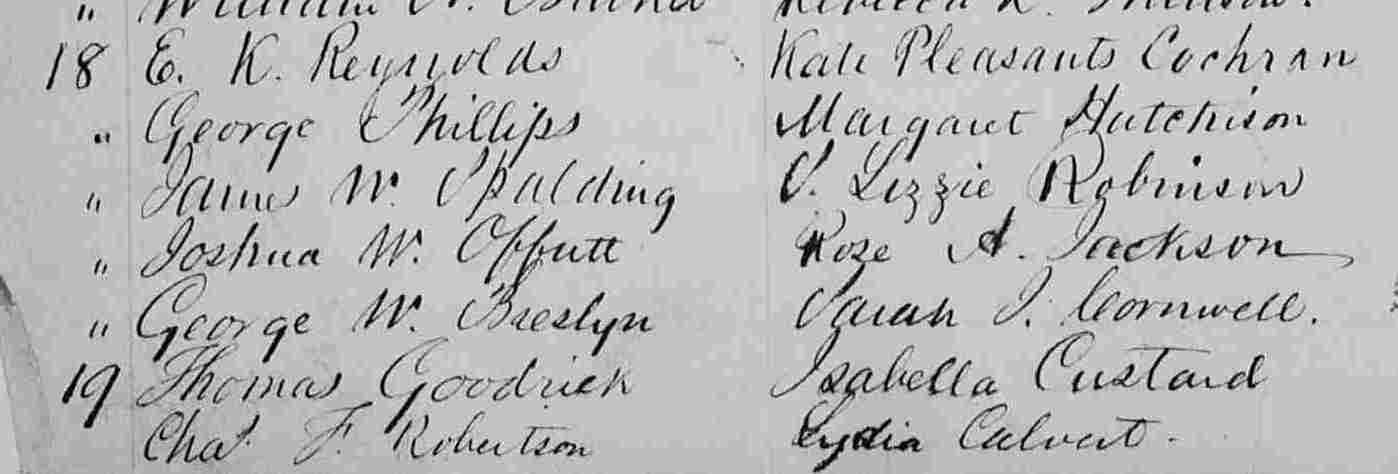 " William
18 E. K. Reynolds Kate Pleasants Cochran
" George Phillips Margaret Hutchison
" James W. Spalding S. Lizzie Robinson
" Joshua W. Offutt Rose A. Jackson
" George W. Breslyn Sarah J. Cornwell.
19 Thomas Goodrick Isabella Custard
Chas F. Robertson Lydia Calvert.